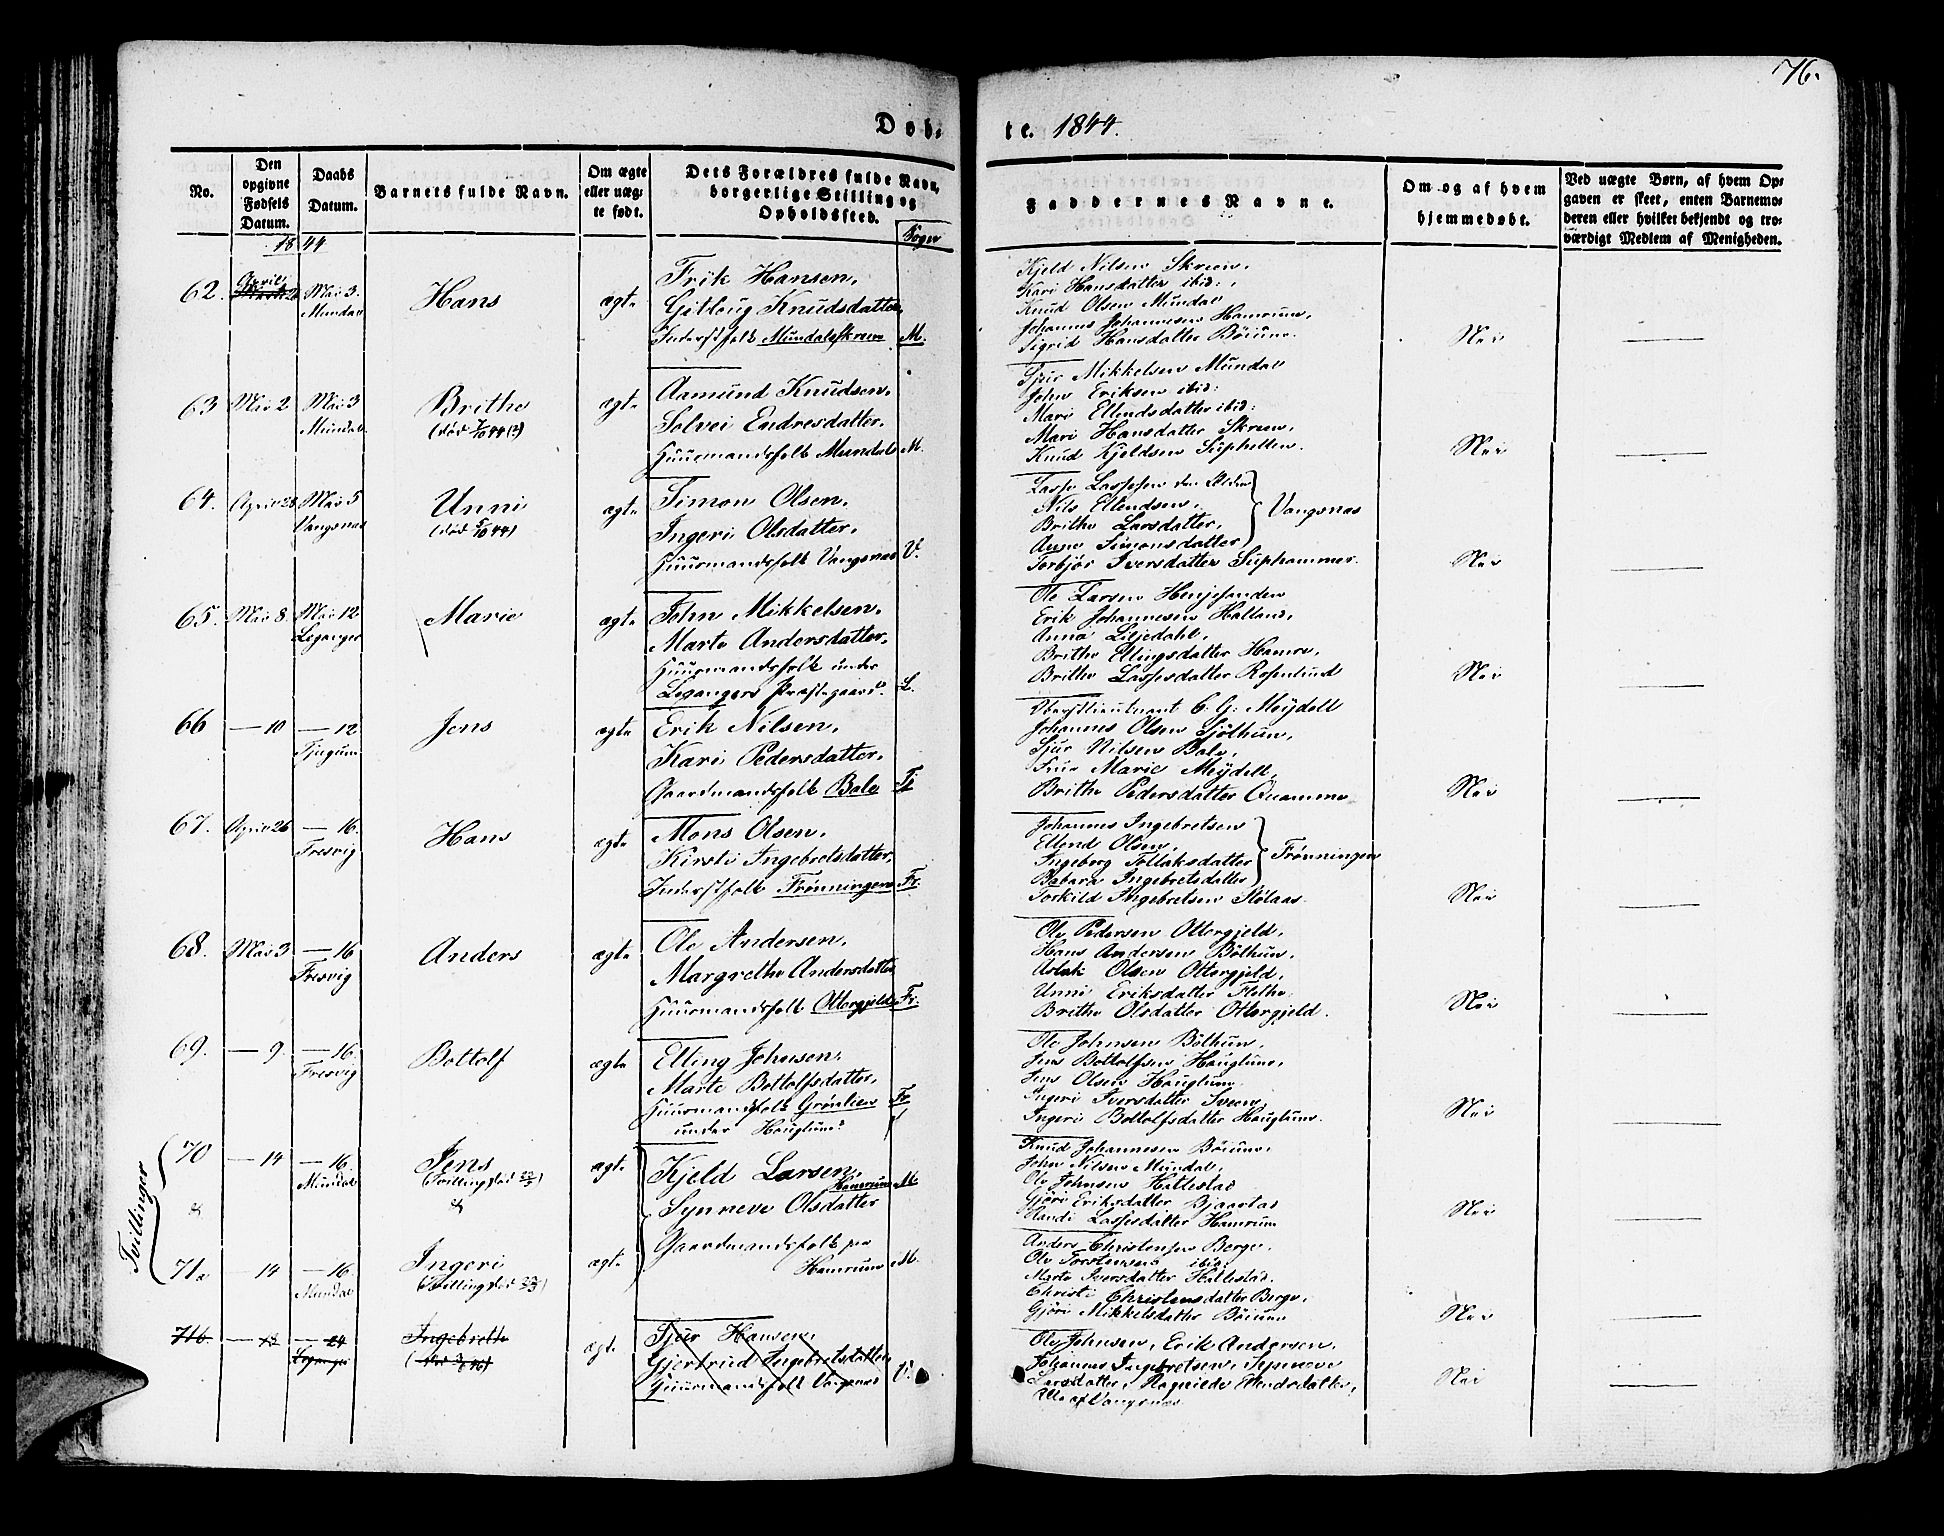 76.
Døb-
te. 1844.
No.
Den opgivne Fødsels Datum.
Daabs Datum.
Barnets fulde Navn.
Om ægte eller uæg-te født.
Dets Forældres fulde Navn, borgerlige Stilling og Opholdssted.
Sogn
Faddernes Navne.
Om og af hvem hjemmedøbt.
Ved uægte Børn, af hvem Op-gaven er skeet, enten Barnemo-deren eller hvilket bekjendt og tro-værdigt Medlem af Menigheden.
1844
62. April Mai 3. Mundal
Hans
ægte
Erik Hansen,
Gitloug Knudsdatter,
Inderstfolk Mundalsskreen M.
Kjeld Nilsen Skreen,
Kari Hansdatter ibid:,
Knud Olsen Mundal
Johannes Johannesen Hamrum,
Sigrid Hansdatter Böium.
Nei
63 Mai 2 Mai 3 Mundal.
Brithe
(død 7/10 44 (?)
ægte
Aamund Knudsen,
Solvei Endresdatter,
Huusmandsfolk Mundal M.
Sjur Mikkelsen Mundal
John Eriksen ibid:
Mari Ellendsdatter ibid:
Mari Hansdatter Skreen,
Knud Kjeldsen Suphellen.
Nei
64. April 28 Mai 5 Vangsnæs
Unni
(død 5/10 44)
ægte
Simon Olsen,
Ingeri Olsdatter,
Huusmandsfolk Vangsnæs V.
Lasse Lassesen den Eldre
Nils Ellendsen,
Brithe Larsdatter,
Anne Simonsdatter
Vangsnæs
Torbjør Iversdatter Suphammer.
Nei
65. Mai 8. Mai 12 Leganger
Marie
ægte
John Mikkelsen,
Marte Andersdatter,
Huusmandsfolk under
Legangers Præstegaard. L.
Ole Larsen Henjesanden
Erik Johannesen Halland,
Anna Liljedahl,
Brithe Ellingsdatter Hamre,
Brithe Lassesdatter Rosenlund
Nei
66 — 10 — 12 Tjugum
Jens
ægte
Erik Nilsen,
Kari Pedersdatter,
Gaardmandsfolk Bale Tj
Oberstlieutnant C. G: Meydell
Johannes Olsen Sjöthun,
Sjur Nilsen Bale,
Frue Marie Meydell,
Brithe Pedersdatter Quamme
Nei
67. April 26 — 16. Fresvig
Hans
ægte
Mons Olsen,
Kirsti Ingebretsdatter,
Inderstfolk Frønningen Fr.
Johannes Ingebretsen
Ellend Olsen,
Ingeborg Tollaksdatter
Babara Ingebretsdatter
Frønningen
Torkild Ingebretsen Stölaas.
Nei
68. Mai 3 — 16 Fresvig
Anders
ægte
Ole Andersen,
Margrethe Andersdatter
Huusmandsfolk Ottergjeld Fr.
Ole Pedersen Ottergjeld,
Hans Andersen Böthun,
Aslak Olsen Ottergjeld,
Unni Eriksdatter Flethe
Brithe Olsdatter Ottergjeld.
Nei
69. — 9. — 16. Fresvig
Bottolf
ægte
Elling Johnsen,
Marte Bottolfsdatter,
Huusmandsfolk Grønlien Fr
under Hauglum
Ole Johnsen Böthun,
Jens Bottolfsen Hauglum,
Jens Olsen Hauglum
Ingeri Iversdatter Sveen,
Ingeri Bottolfsdatter Hauglum.
Nei
Tvillinger
70 — 14 — 16. Mundal
Jens
(Tvilling død 22/5)
&
&
ægte
Kjeld Larsen,
Hamrum M.
Synneve Olsdatter
Gaardmandsfolk paa
Hamrum M.
Knud Johannesen Böium,
John Nilsen Mundal,
Ole Johnsen Hallestad
Gjöri Eriksdatter Bjaastad
Randi Lassesdatter Hamrum
Nei
71a — 14 — 16. Mundal
Ingeri
(Tvilling død 23/5)
ægte
Anders Christensen Berge,
Ole Torstensen ibid:
Marte Iversdatter Hallestad.
Christi Christensdatter Berge,
Gjöri Mikkelsdatter Böium
Nei
71b — 12 — 24 Leganger
Ingebreth
ægte
Sjur Hansen,
Gjertrud Ingebretsdatter
Huusmandsfolk Vangsnæs V.
Ole Johnsen, Erik Andersen,
Johannes Ingebretsen, Synneve
Larsdatter, Ragnilde Ellendsdatter,
Alle af Vangsnæs
Nei